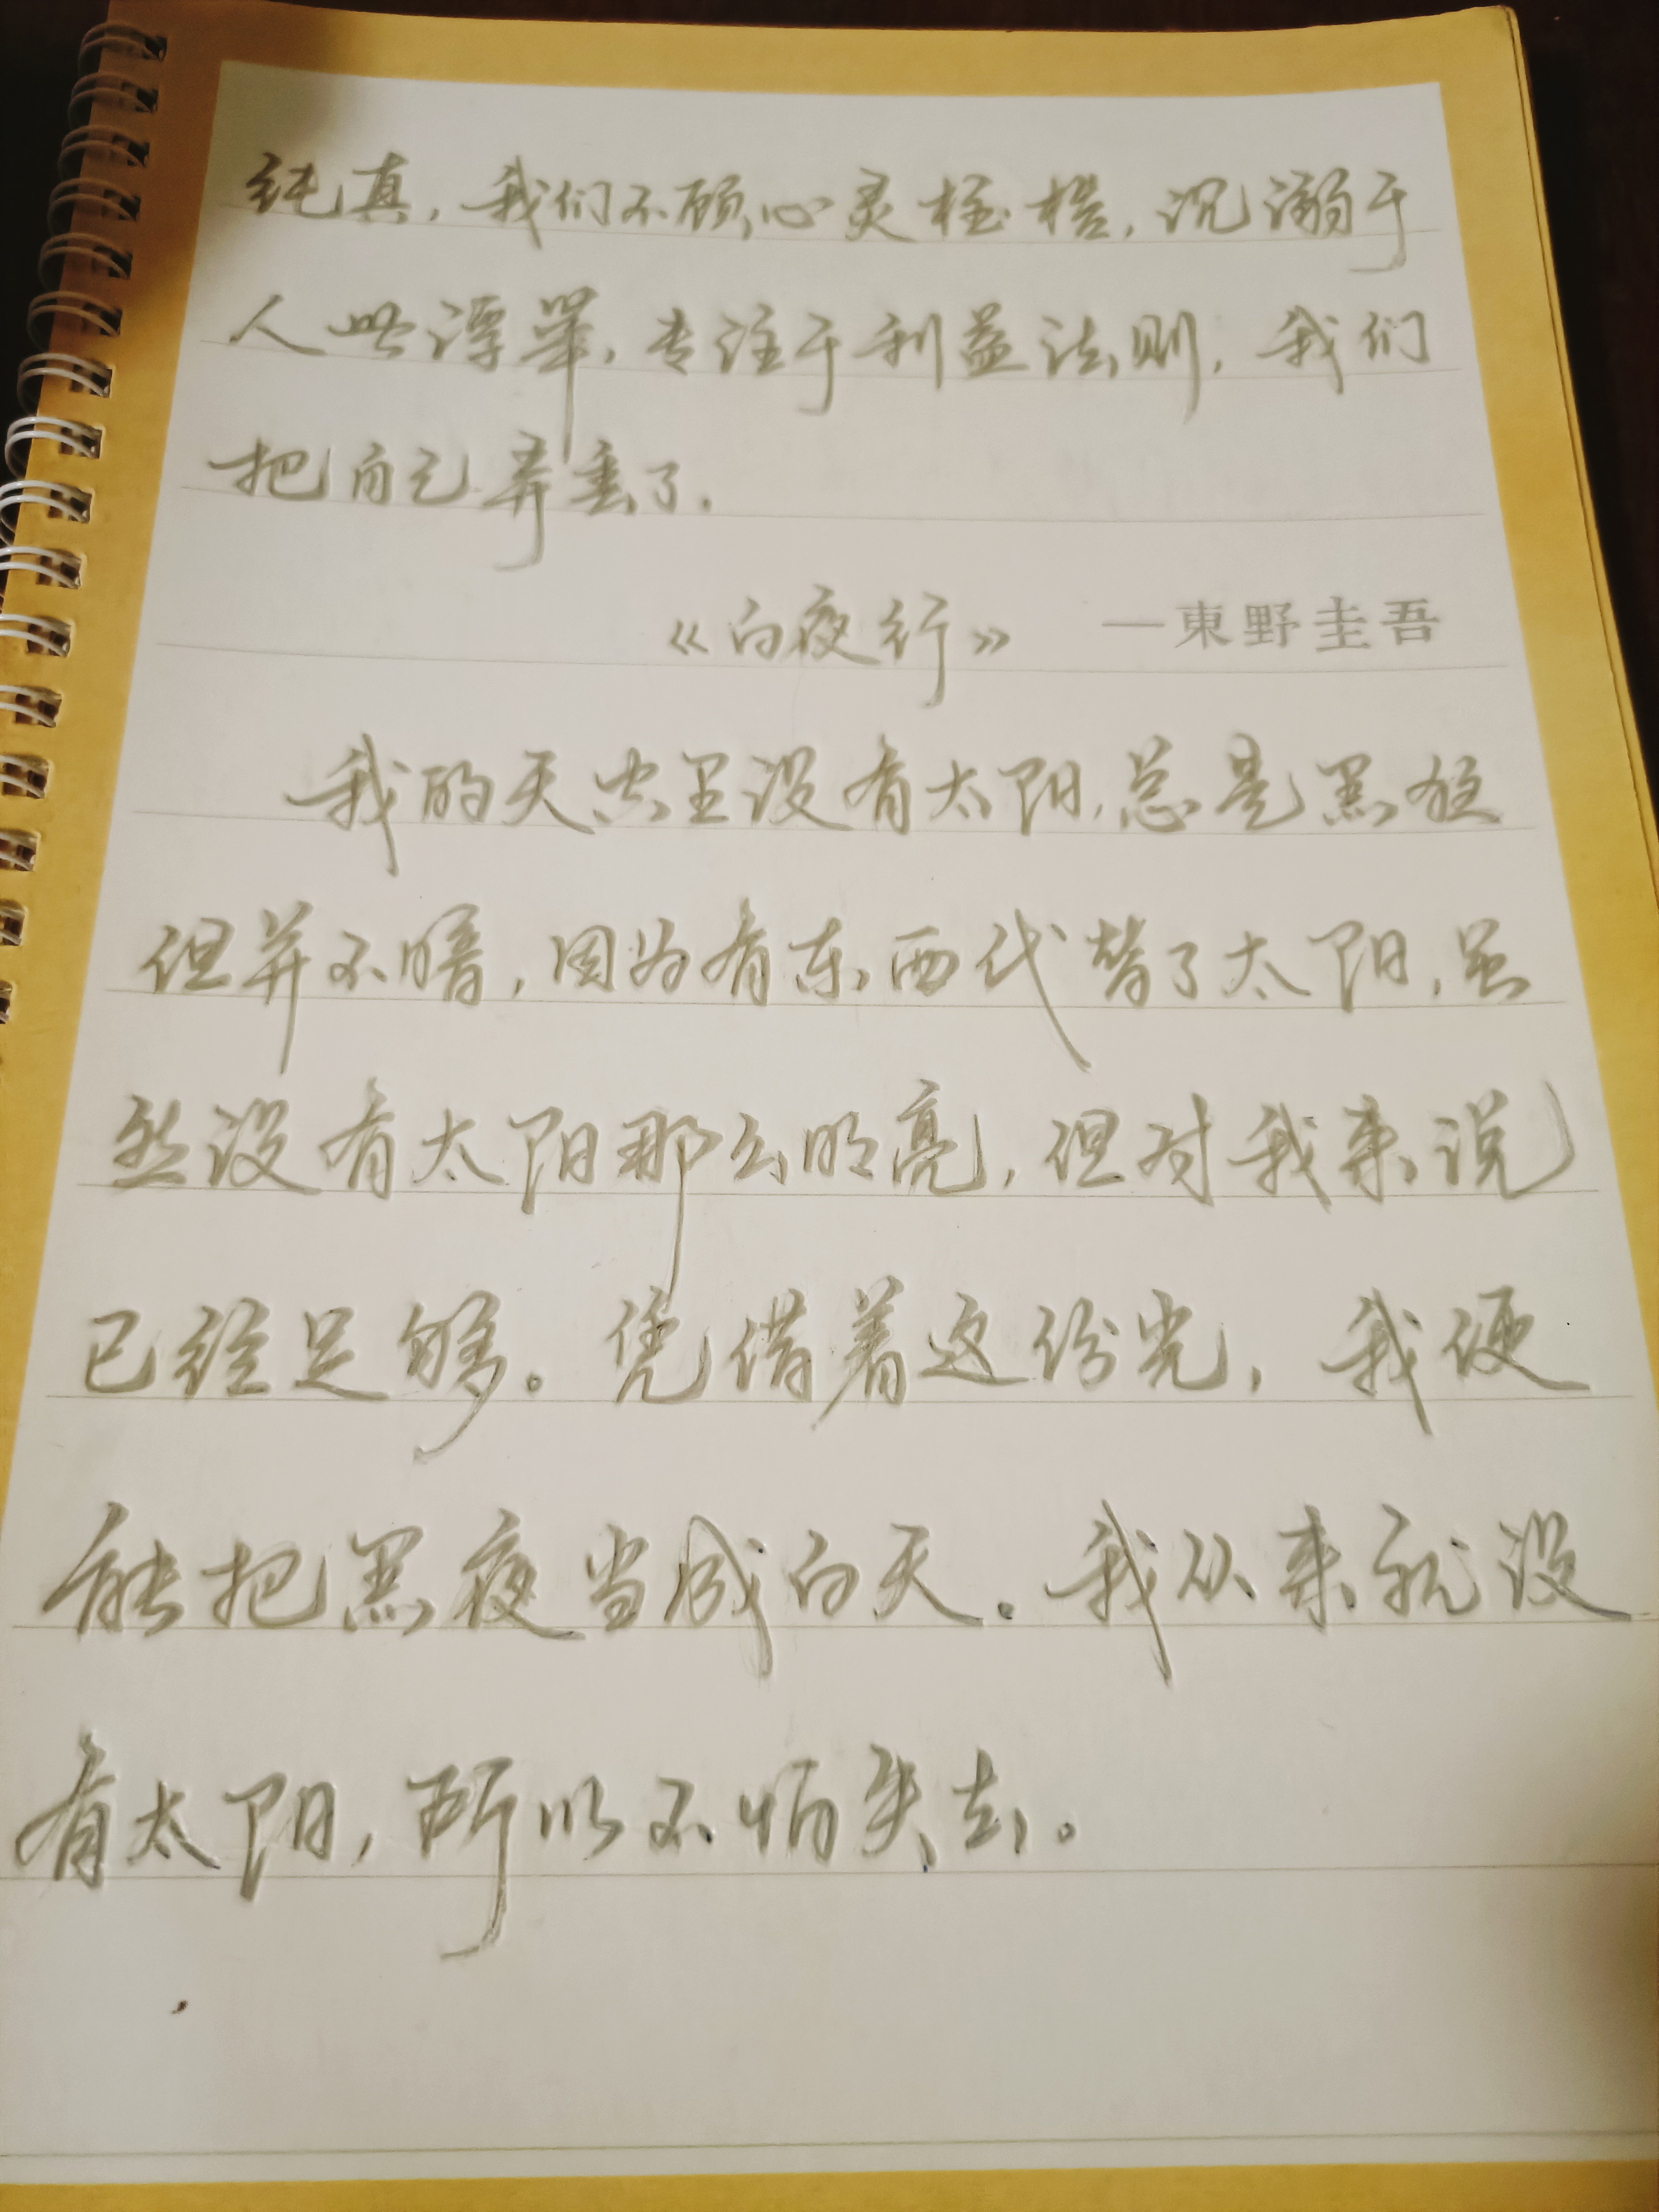 纯真，我们不顾心灵桎梏，沉溺于
人世浮华，专注于利益法则，我们
把自己弄丢了.
《白夜行》 —東野圭吾
我的天空里没有太阳，总是黑夜
但并不暗，因为有东西代替了太阳，虽
然没有太阳那么明亮，但对我来说
已经足够。凭借着这份光，我便
能把黑夜当成白天。我从来就没
有太阳，所以不怕失去。